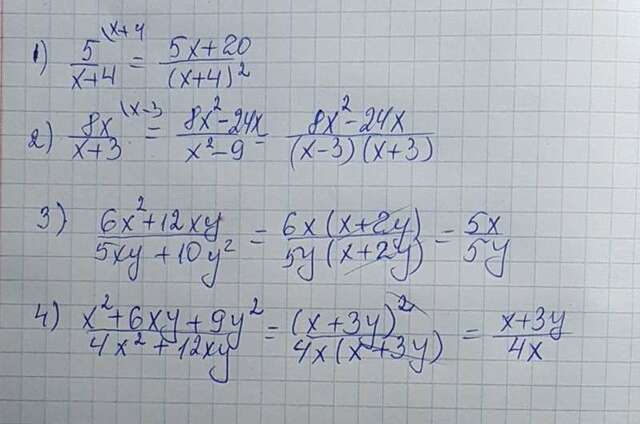 1) 5/(x+4) \x+4 = (5x+20)/(x+4)²
2) 8x/(x+3) \x-3 = (8x²-24x)/(x²-9) = (8x²-24x)/((x-3)(x+3))
3) (6x²+12xy)/(5xy+10y²) = (6x(x+2y))/(5y(x+2y)) = 5x/5y
4) (x²+6xy+9y²)/(4x²+12xy) = (x+3y)²/(4x(x+3y)) = (x+3y)/4x